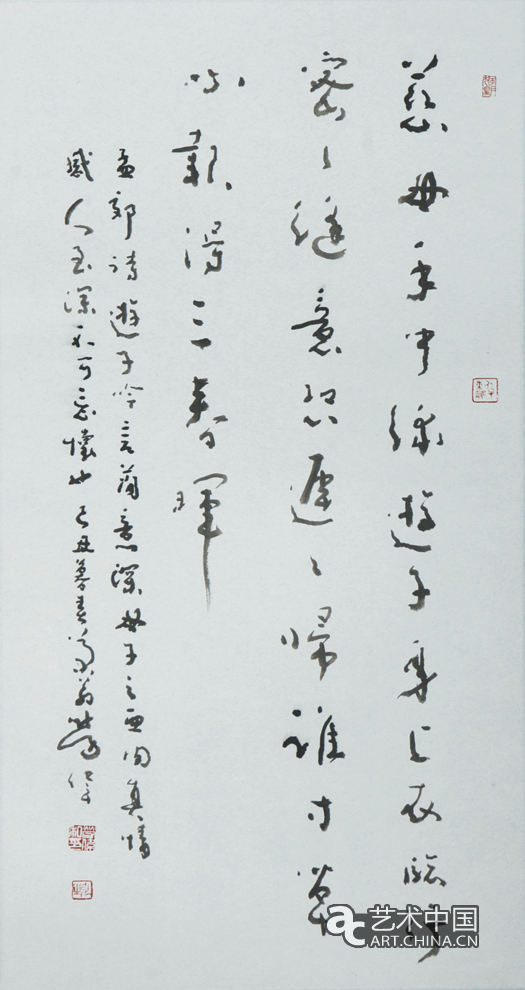 慈母手中線遊子身上衣臨行
密々縫意恐遲々歸誰寸草
心報得三春暉
孟郊詩遊子吟言簡意深母子之血肉真情
感人至深不可忘懷也己丑暮春
艺术中国
ART.CHINA.CN